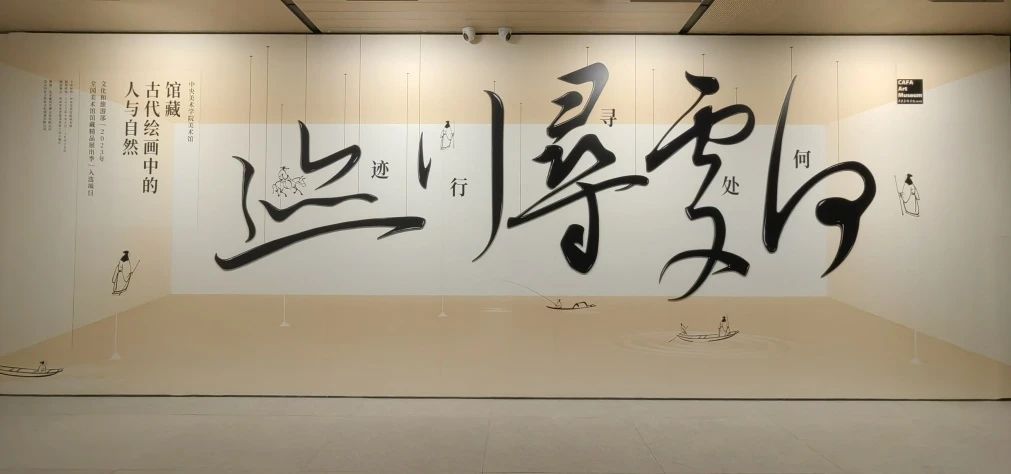 何處尋行迹
何
处
寻
行
迹
CAFA
Art
Museum
中央美术学院美术馆
馆藏
古代绘画中的
人与自然
文化和旅游部“2023年
全国美术馆馆藏精品展出季”入选项目